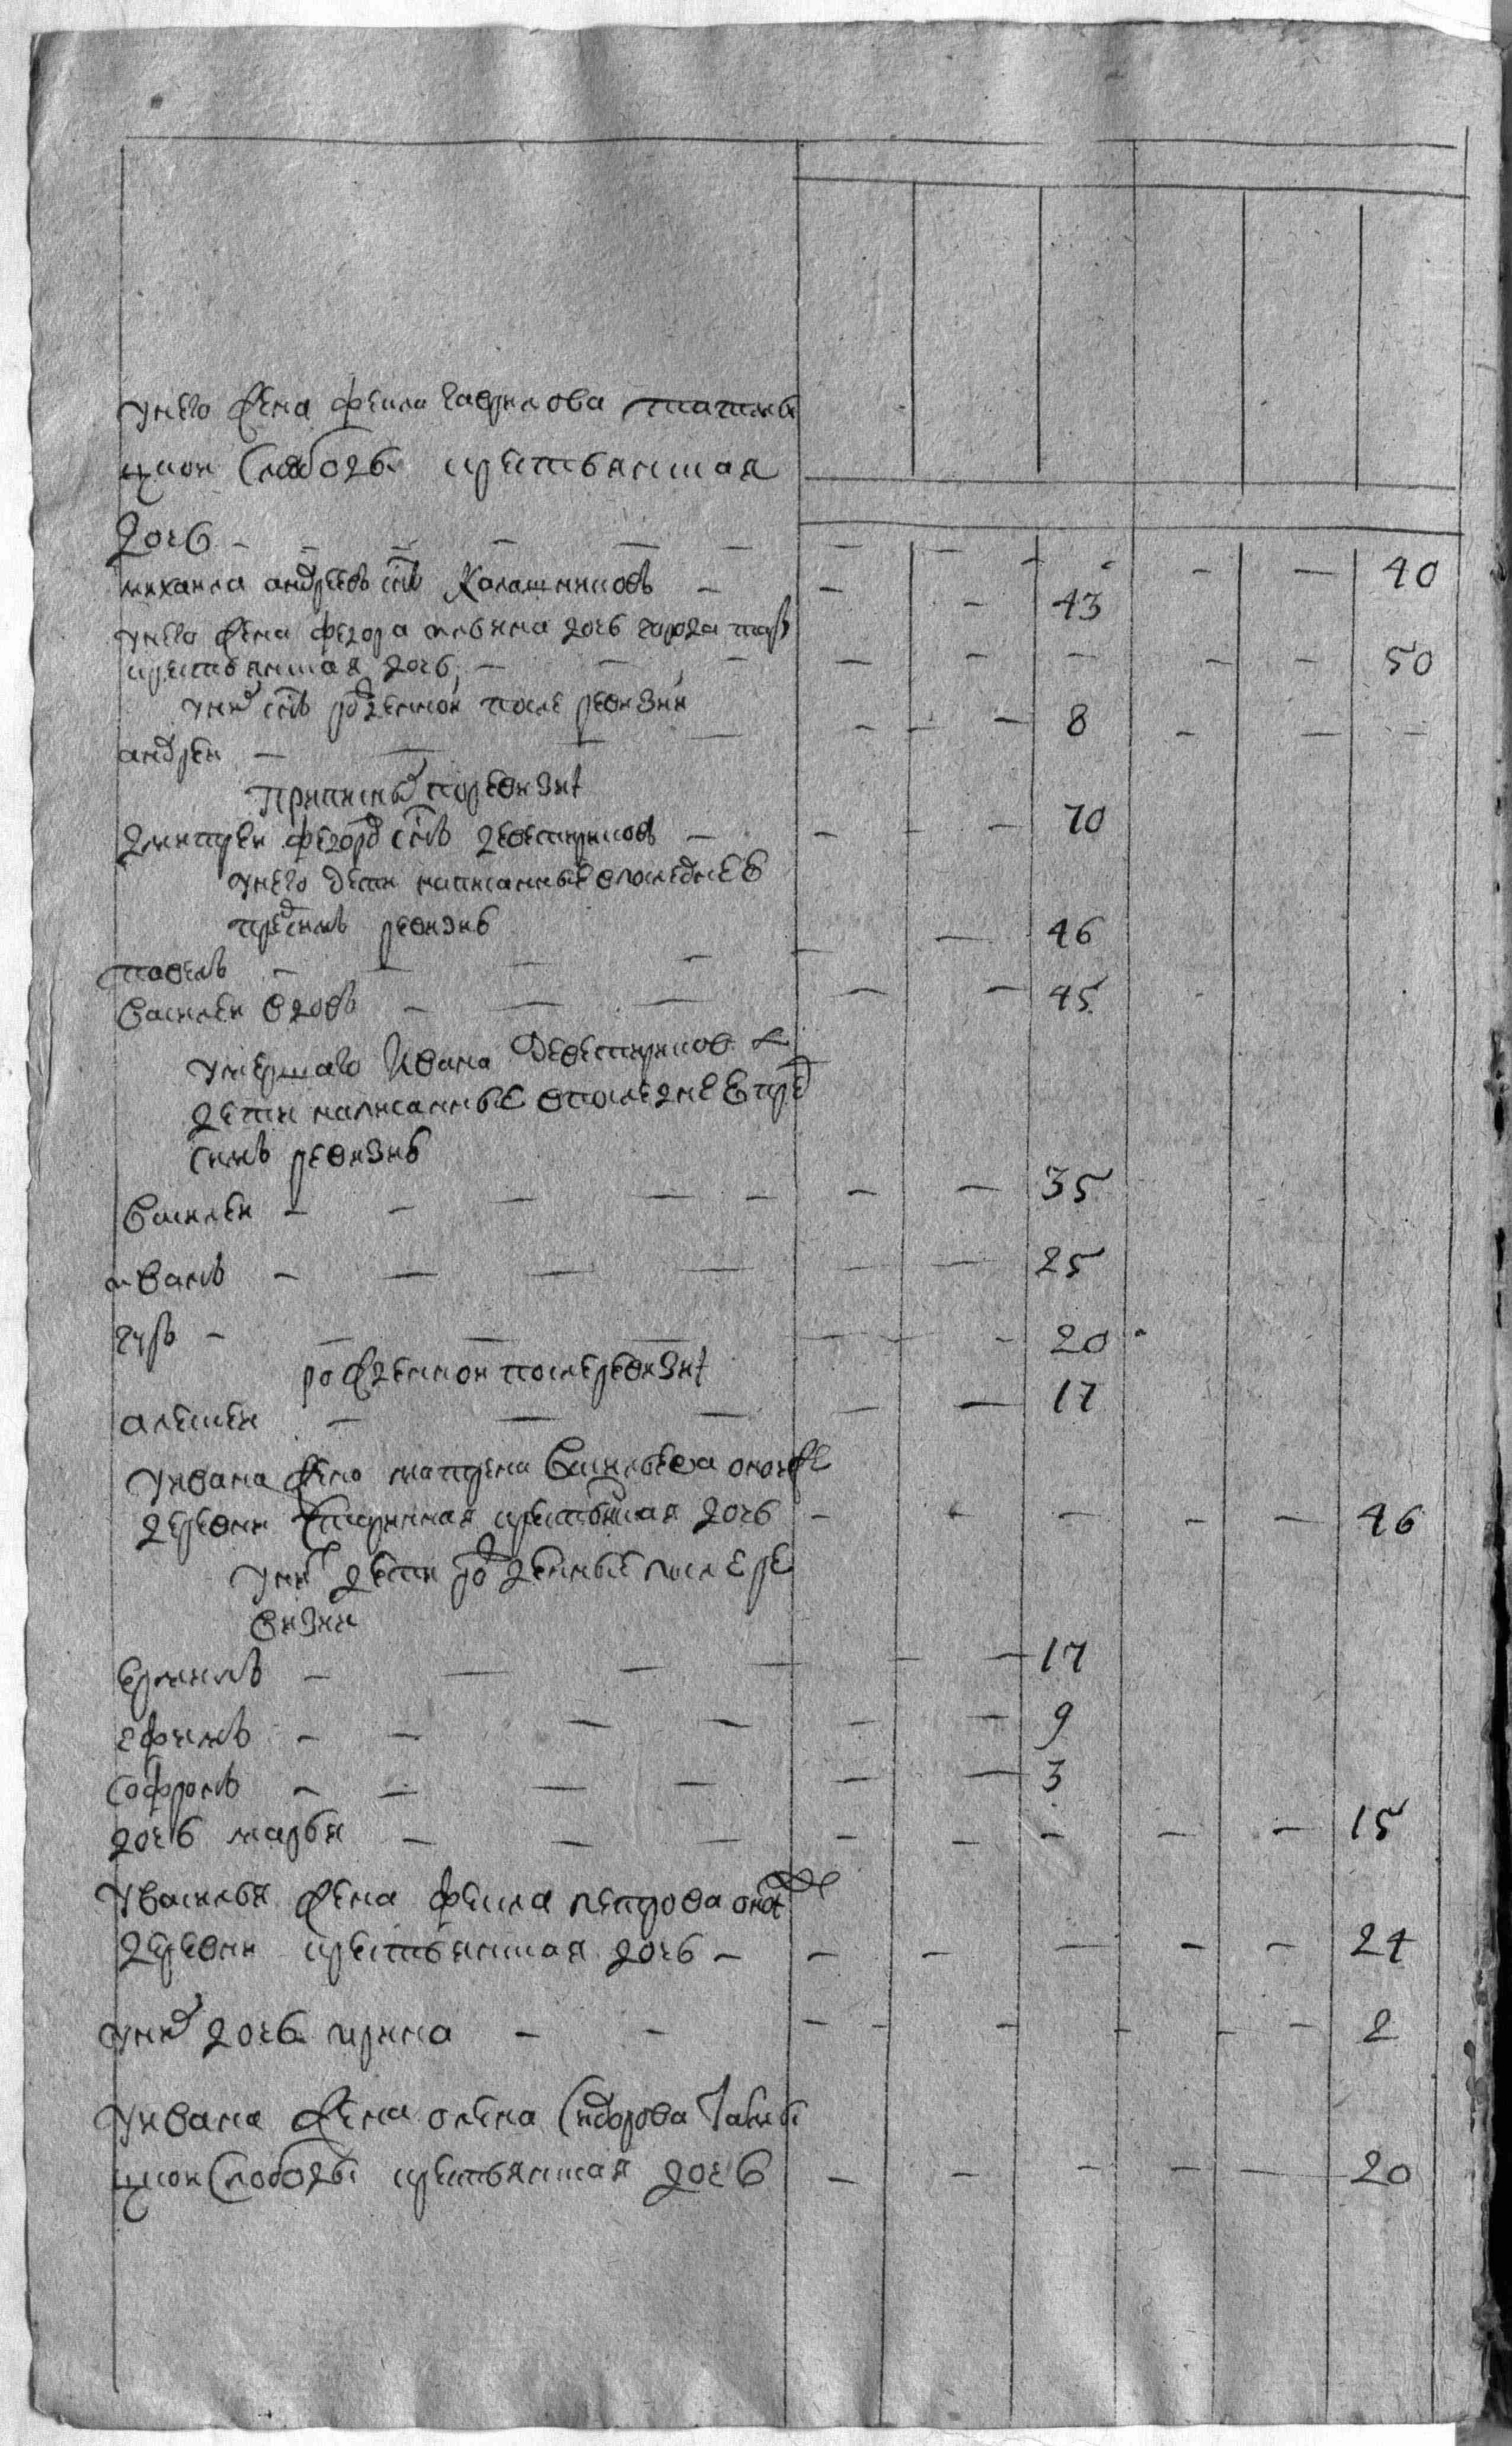 у него жена фекла гаврилова
цкой слободы крестьянская
дочь - - - - - - - - - - - - 40
михаила андреевъ снъ Калашниковъ - - - 43
у него жена федора ильина дочь города
крестьянская дочь - - - - - - - - 50
у них снъ рожденной после ревизии
андрей - - - - - - - 8 - - -
приписной по ревизиѣ
дмитрей федоров снъ деветериковъ - - - - 70
у него дети написанные в последнее
пред симъ ревизиы
павелъ - - - - - - 46
василей вдовъ - - - - - 45
умершаго Ивана Деветериков
дети написанные в последнее пред
симъ ревизиы
василей - - - - - - - 35
иванъ - - - - - - 25
гуръ - - - - - - - 20
рожденной после ревизиѣ
алексей - - - - - 17
у ивана жена матрена васильева оной же
деревни старинная крестьянская дочь - - - - - 46
у них дети рожденные после ре
визии
ермилъ - - - - - - 17
ефимъ - - - - - - 9
софронъ - - - - - - 3
дочь марья - - - - - - - - 15
у василья жена фекла петрова оной же
деревни крестьянская дочь - - - - - - 24
у них дочь ирина - - - - - - - - 2
у ивана жена олена сидорова
цкой слободы крестьянская дочь - - - - - 20